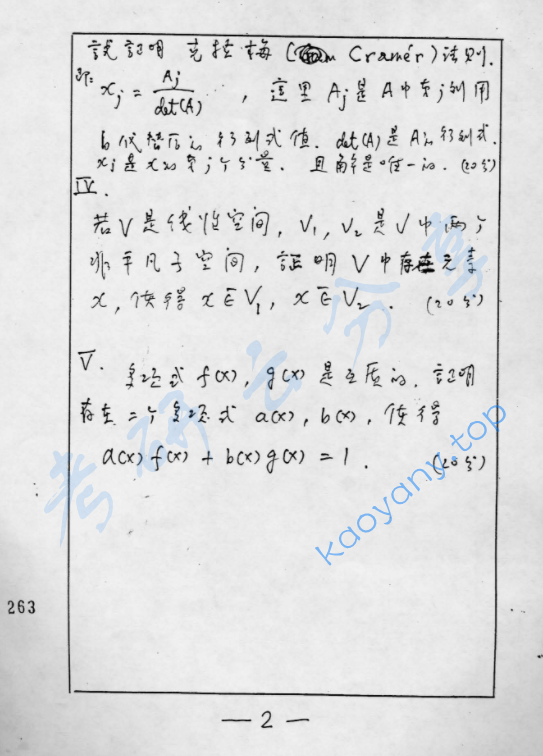 試証明 克拉梅 (Cramér) 法则.
即: xj = Aj / det(A) , 這里 Aj 是 A 中第 j 列用
b 代替后的行列式值. det(A) 是 A 的行列式.
xj 是 x 的第 j 个分量. 且解是唯一的. (20分)
IV.
若 V 是线性空间, V1, V2 是 V 中两个
非平凡子空间, 証明 V 中存在元素
x, 使得 x ∈̄ V1, x ∈̄ V2 . (20分)
V. 多项式 f(x), g(x) 是互质的. 証明
存在二个多项式 a(x), b(x), 使得
a(x) f(x) + b(x) g(x) = 1. (20分)
263
— 2 —
考研云分享
kaoyany.top